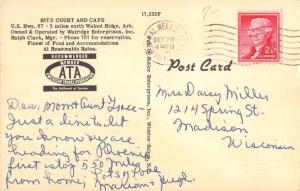 RITZ COURT AND CAFE
U.S. Hwy. 67 - 5 miles north Walnut Ridge, Ark.
Owned & Operated by Walridge Enterprises, Inc.
Ralph Clark, Mgr. - Phone 101 for reservation.
Finest of Food and Accommodations
At Reasonable Rates.
17,332F
RECOMMENDED
MEMBER
ATA
The Hallmark of Service
Post Card
2¢
Dear, Mom & Aunt Grace -
Just a line to let
you know we are
heading for Phoenix
first stop 550 miles
from home,
Mrs Darcy Miller
1214 Spring St.
Madison
Wisconsin